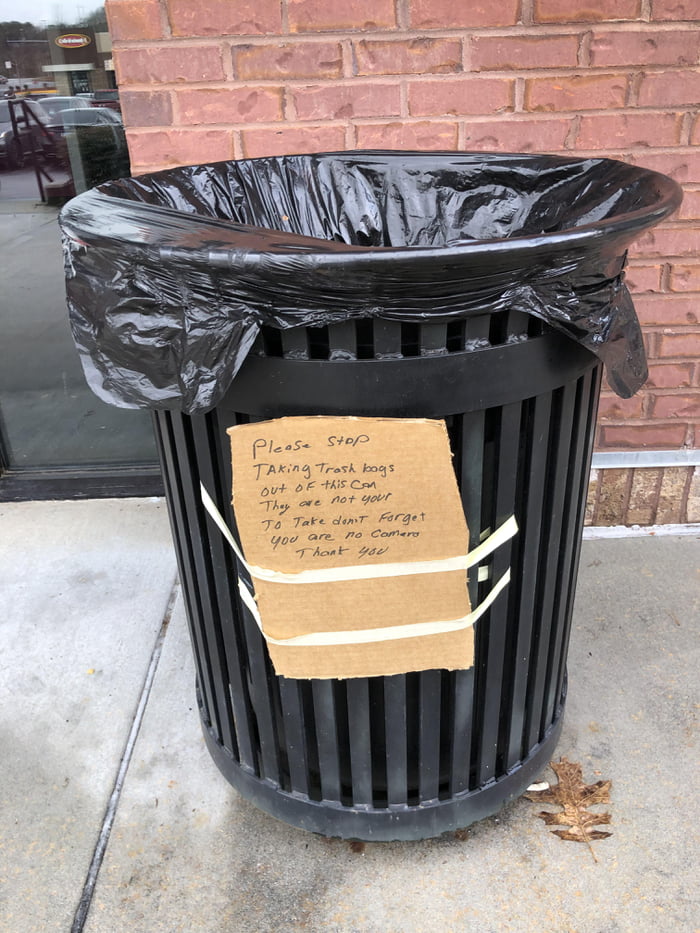 Please Stop
TAking Trash bags
out oF this Can
They are not your
To Take don't Forget
you are no Camera
Thank you